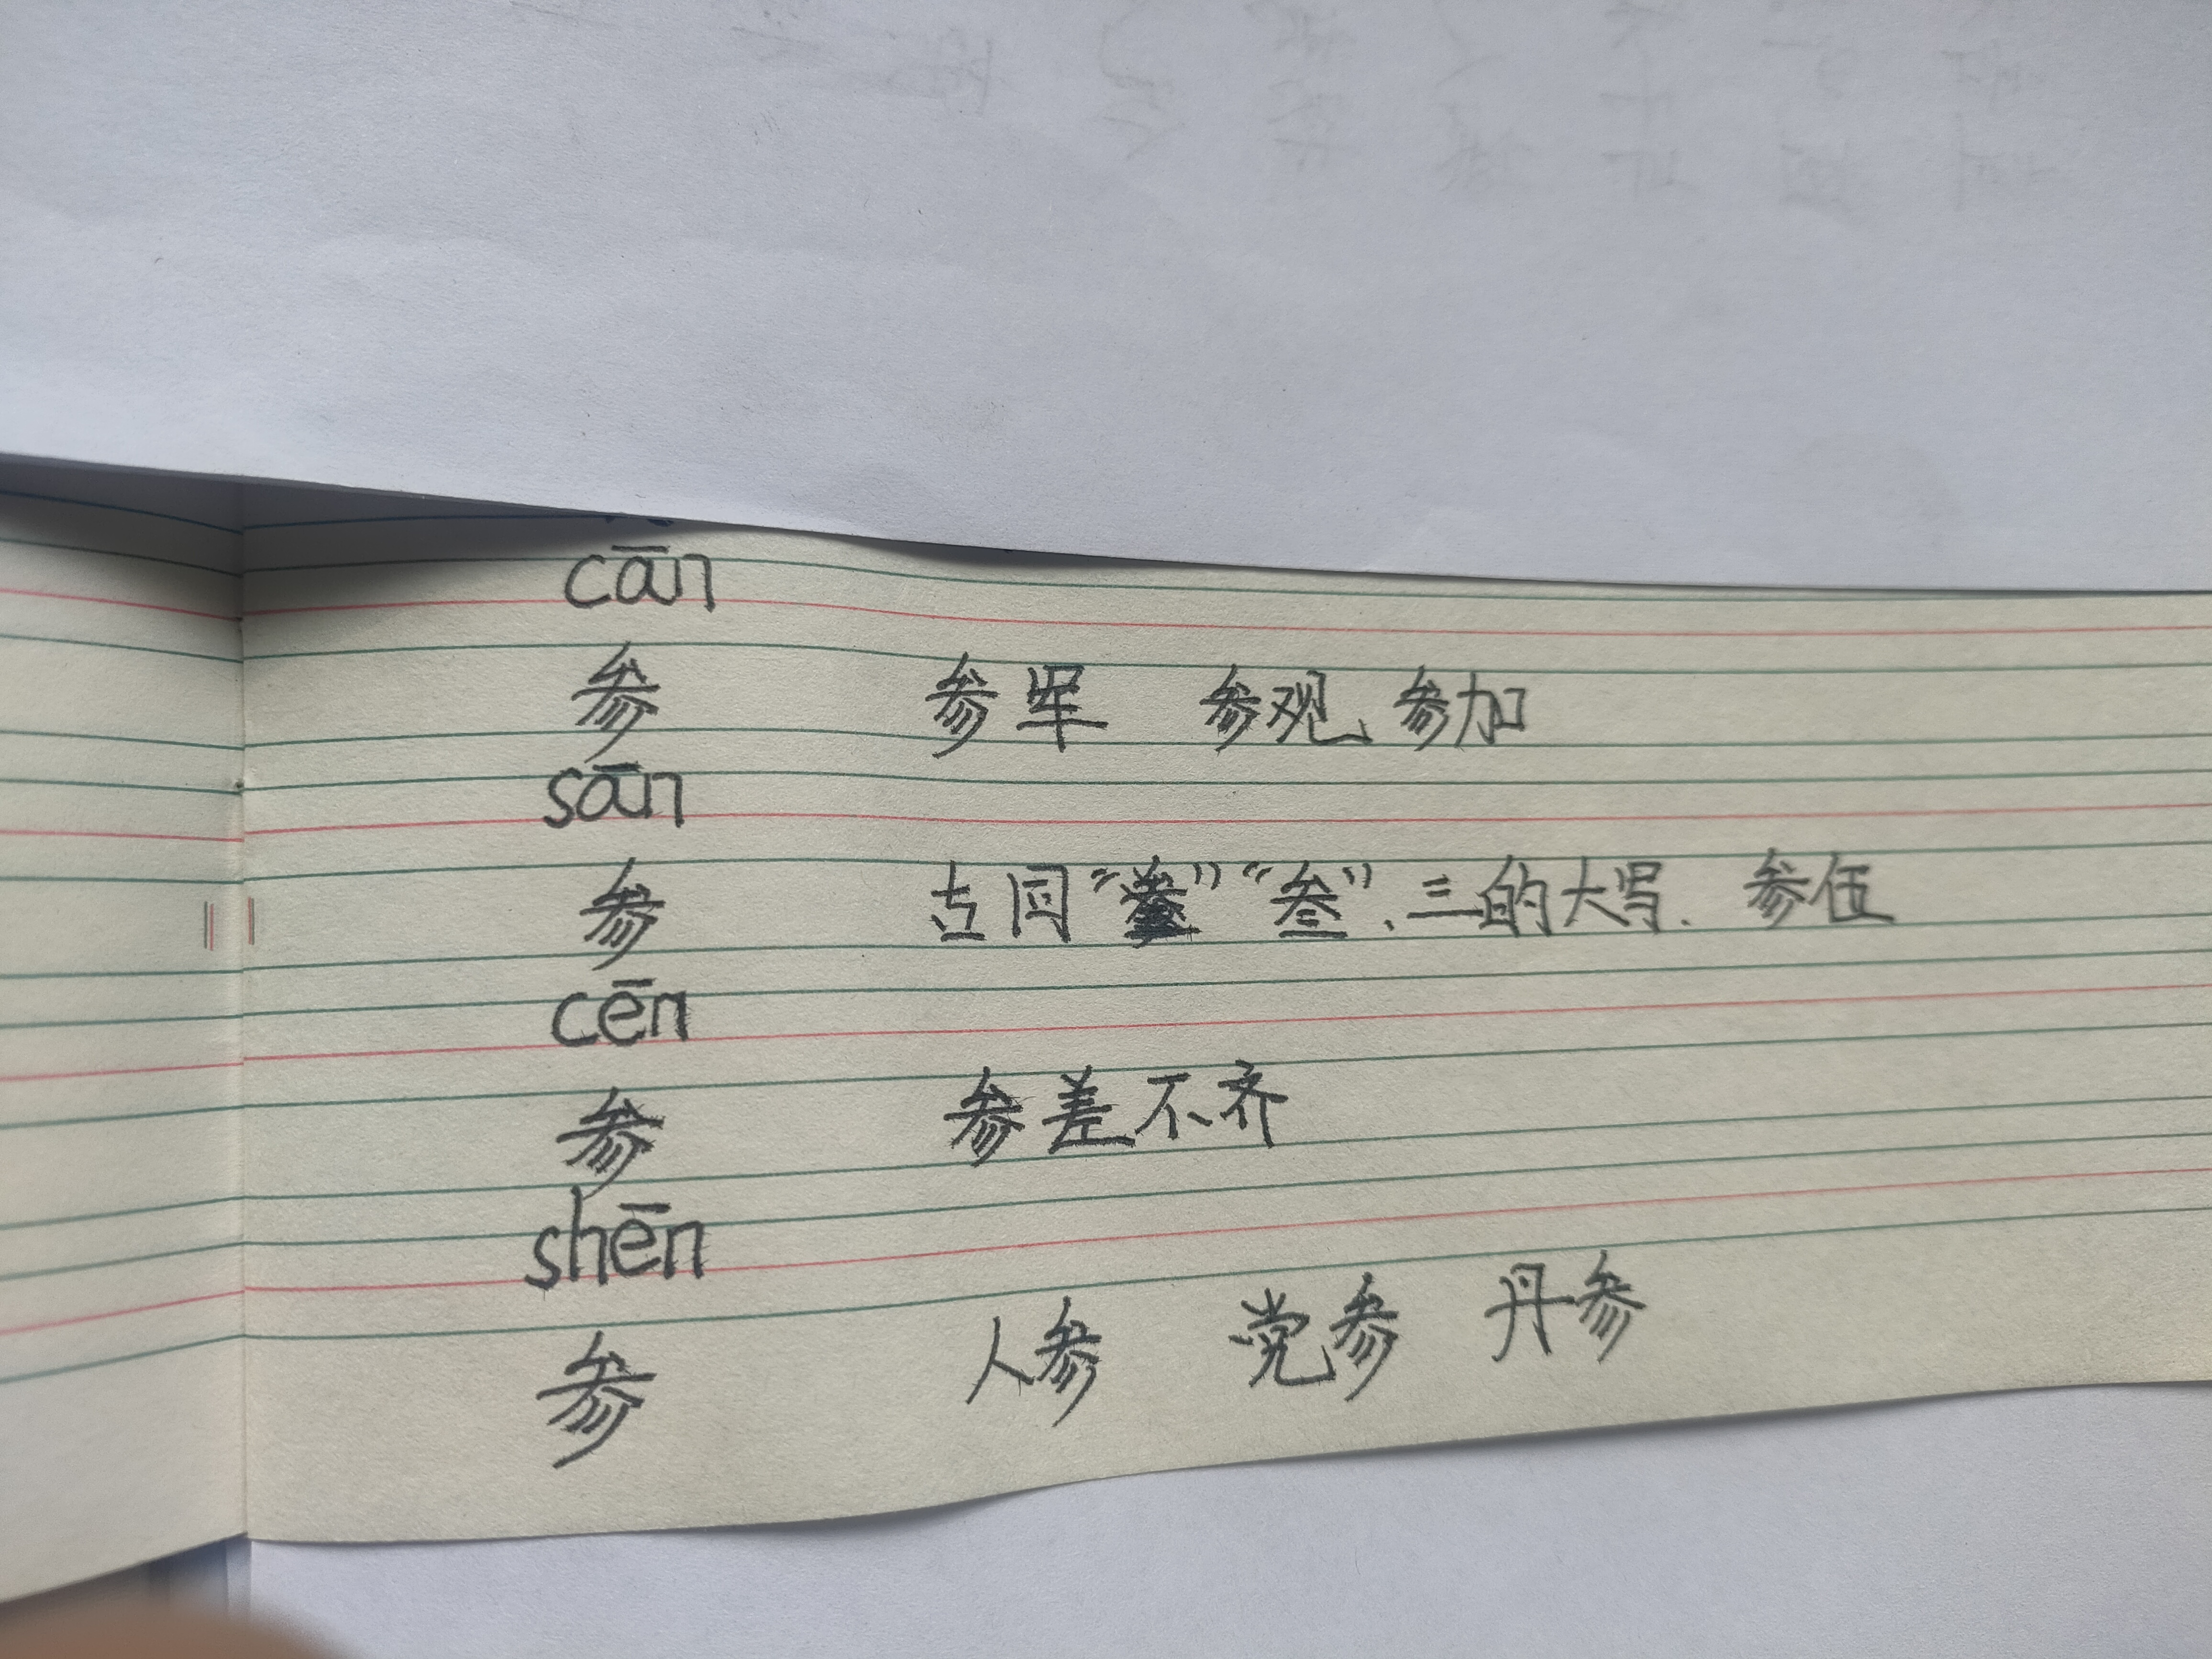 cān
参 参军 参观 参加
sān
参 古同“叁”、三的大写. 参伍
cēn
参 参差不齐
shēn
参 人参 党参 丹参